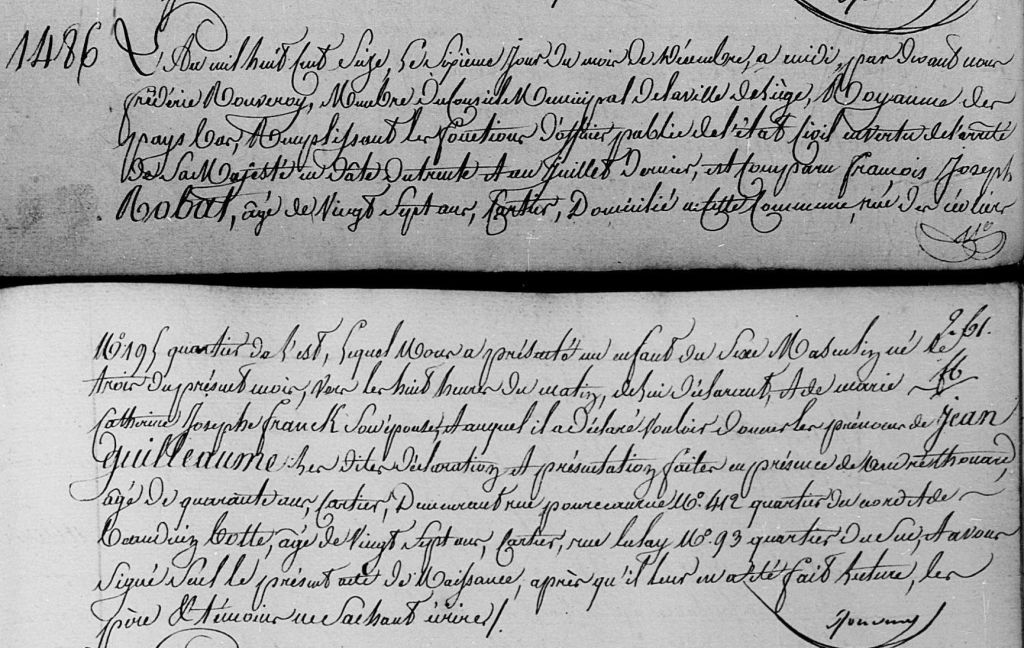 1486
L'An mil huit cent seize, le sixième jour du mois de Décembre, a midi, par devant nous
frédéric Rouveroy, Membre du Conseil Municipal de la ville de Liège, Royaume des
pays bas, Remplissant les fonctions d'officier public de l'état Civil en vertu de l'arrêté
de Sa Majesté en date du trente et un Juillet dernier, est Comparu françois Joseph
Robat, âgé de Vingt Sept ans, Cartier, Domicilié a cette Commune, rue des
N°
N° 195 quartier de l'est, Lequel Nous a présenté un enfant du Sexe Masculin, né le
trois du présent mois, vers les huit heures du matin, de lui déclarant, et de marie
Catherine Josephe franck Son épouse, et auquel il a déclaré vouloir donner les prénoms de jean
guilleaume. Les dites déclaration et présentation faites en présence de
âgé de quarante ans, Cartier, Demeurant rue N°. 412 quartier du nord et de
âgé de Vingt Sept ans, Cartier, rue N°. 93 quartier du Sud, et avons
Signé Seul le présent acte de Naissance, après qu'il leur en a été fait Lecture, les
père & témoins ne Sachant écrire/.
Rouveroy